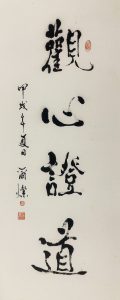 觀心證道
甲戌年夏日